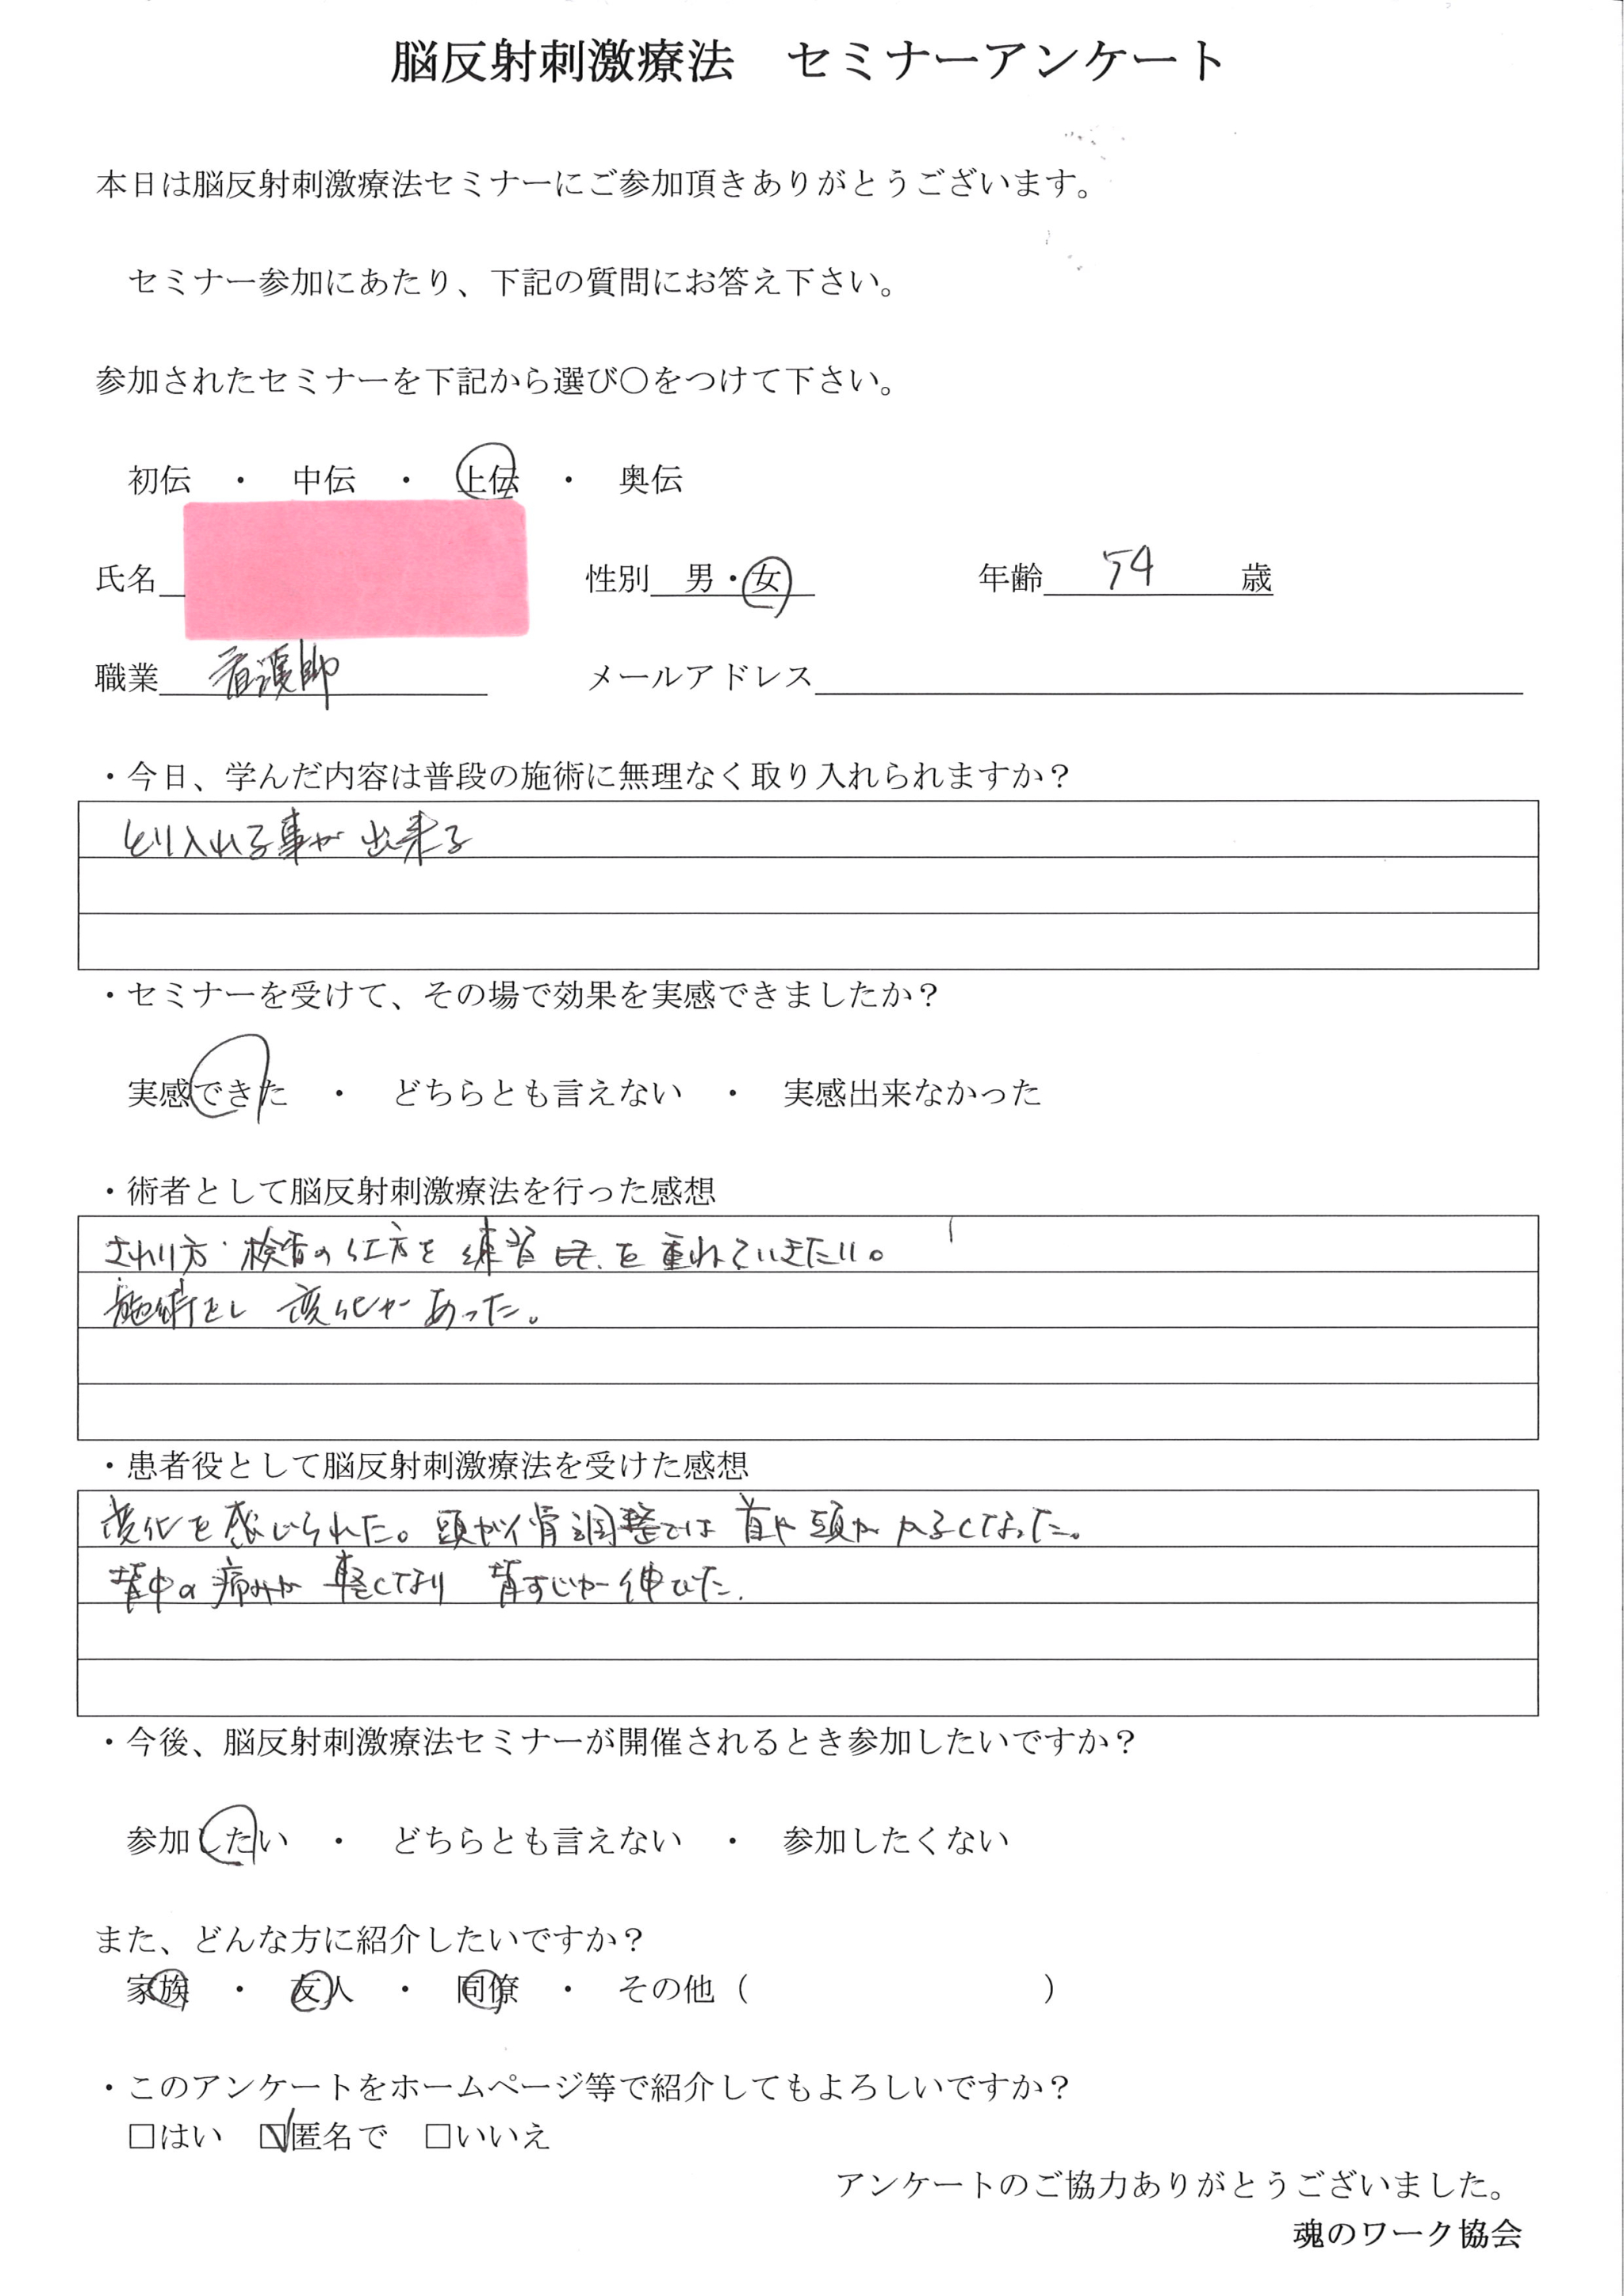 脳反射刺激療法　セミナーアンケート
本日は脳反射刺激療法セミナーにご参加頂きありがとうございます。
セミナー参加にあたり、下記の質問にお答え下さい。
参加されたセミナーを下記から選び〇をつけて下さい。
初伝　・　中伝　・　上伝　・　奥伝
氏名　性別　男・女　年齢　54　歳
職業　看護師　メールアドレス
・今日、学んだ内容は普段の施術に無理なく取り入れられますか？
とり入れる事が出来る
・セミナーを受けて、その場で効果を実感できましたか？
実感できた　・　どちらとも言えない　・　実感出来なかった
・術者として脳反射刺激療法を行った感想
さわり方・検査の仕方を練習を重ねていきたい。
施術をし変化があった。
・患者役として脳反射刺激療法を受けた感想
変化を感じられた。頭がい骨調整では首や頭がかるくなった。
背中の痛みが軽くなり背すじが伸びた.
・今後、脳反射刺激療法セミナーが開催されるとき参加したいですか？
参加したい　・　どちらとも言えない　・　参加したくない
また、どんな方に紹介したいですか？
家族　・　友人　・　同僚　・　その他（　）
・このアンケートをホームページ等で紹介してもよろしいですか？
□はい　☑匿名で　□いいえ
アンケートのご協力ありがとうございました。
魂のワーク協会